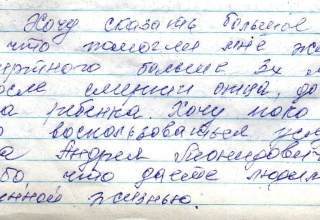 Хочу сказать большое
что помогли мне же
ртного больше 3х м
осле смерти отца, до
а ребенка. Хочу пока
воскользоваться усл
а Андрея Леонидович
бо что даете людям
нной жизнью.